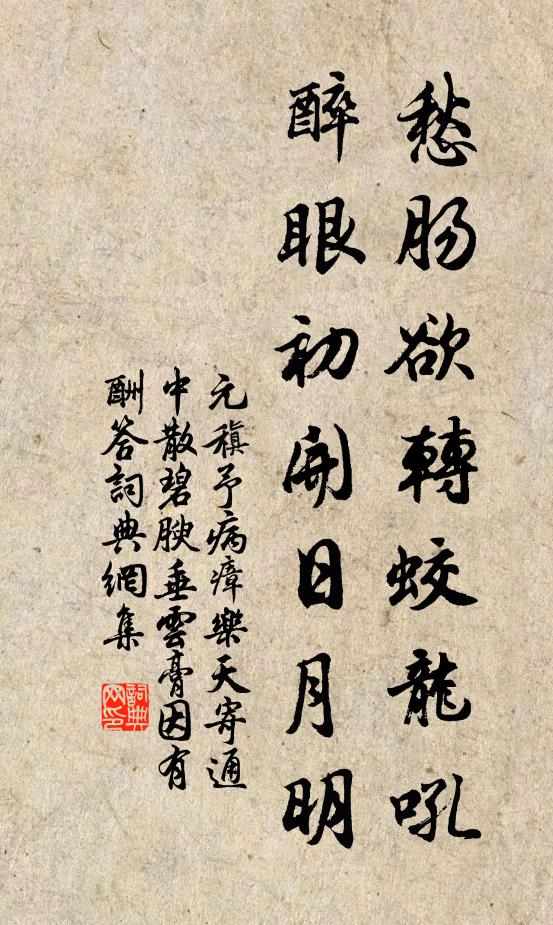 愁肠欲轉蛟龍吼
醉眼初開日月明
元稹予病瘴樂天寄通
中散碧腴垂雲膏因有
酬答詞典網集
詞典
网印